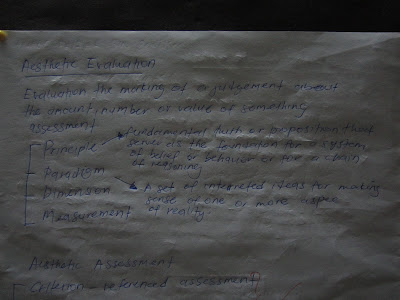 Aesthetic Evaluation
Evaluation the making of a judgement about
the amount, number or value of something
assessment
Principle → fundamental truth or proposition that
serves as the foundation for a system
of belief or behavior or for a chain
of reasoning.
Paradigm
Dimension → A set of interpreted ideas for making
sense of one or more aspec
Measurement of reality.
Aesthetic Assessment
Criterion - referenced assessment